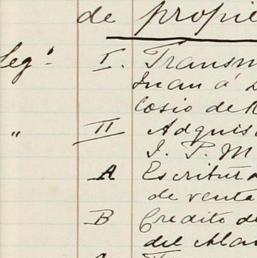 de propie
Leg.º I. Transm
Juan á D
" II Adquis
I. P. M
A Escritura
de venta
B Credito de
del Alar